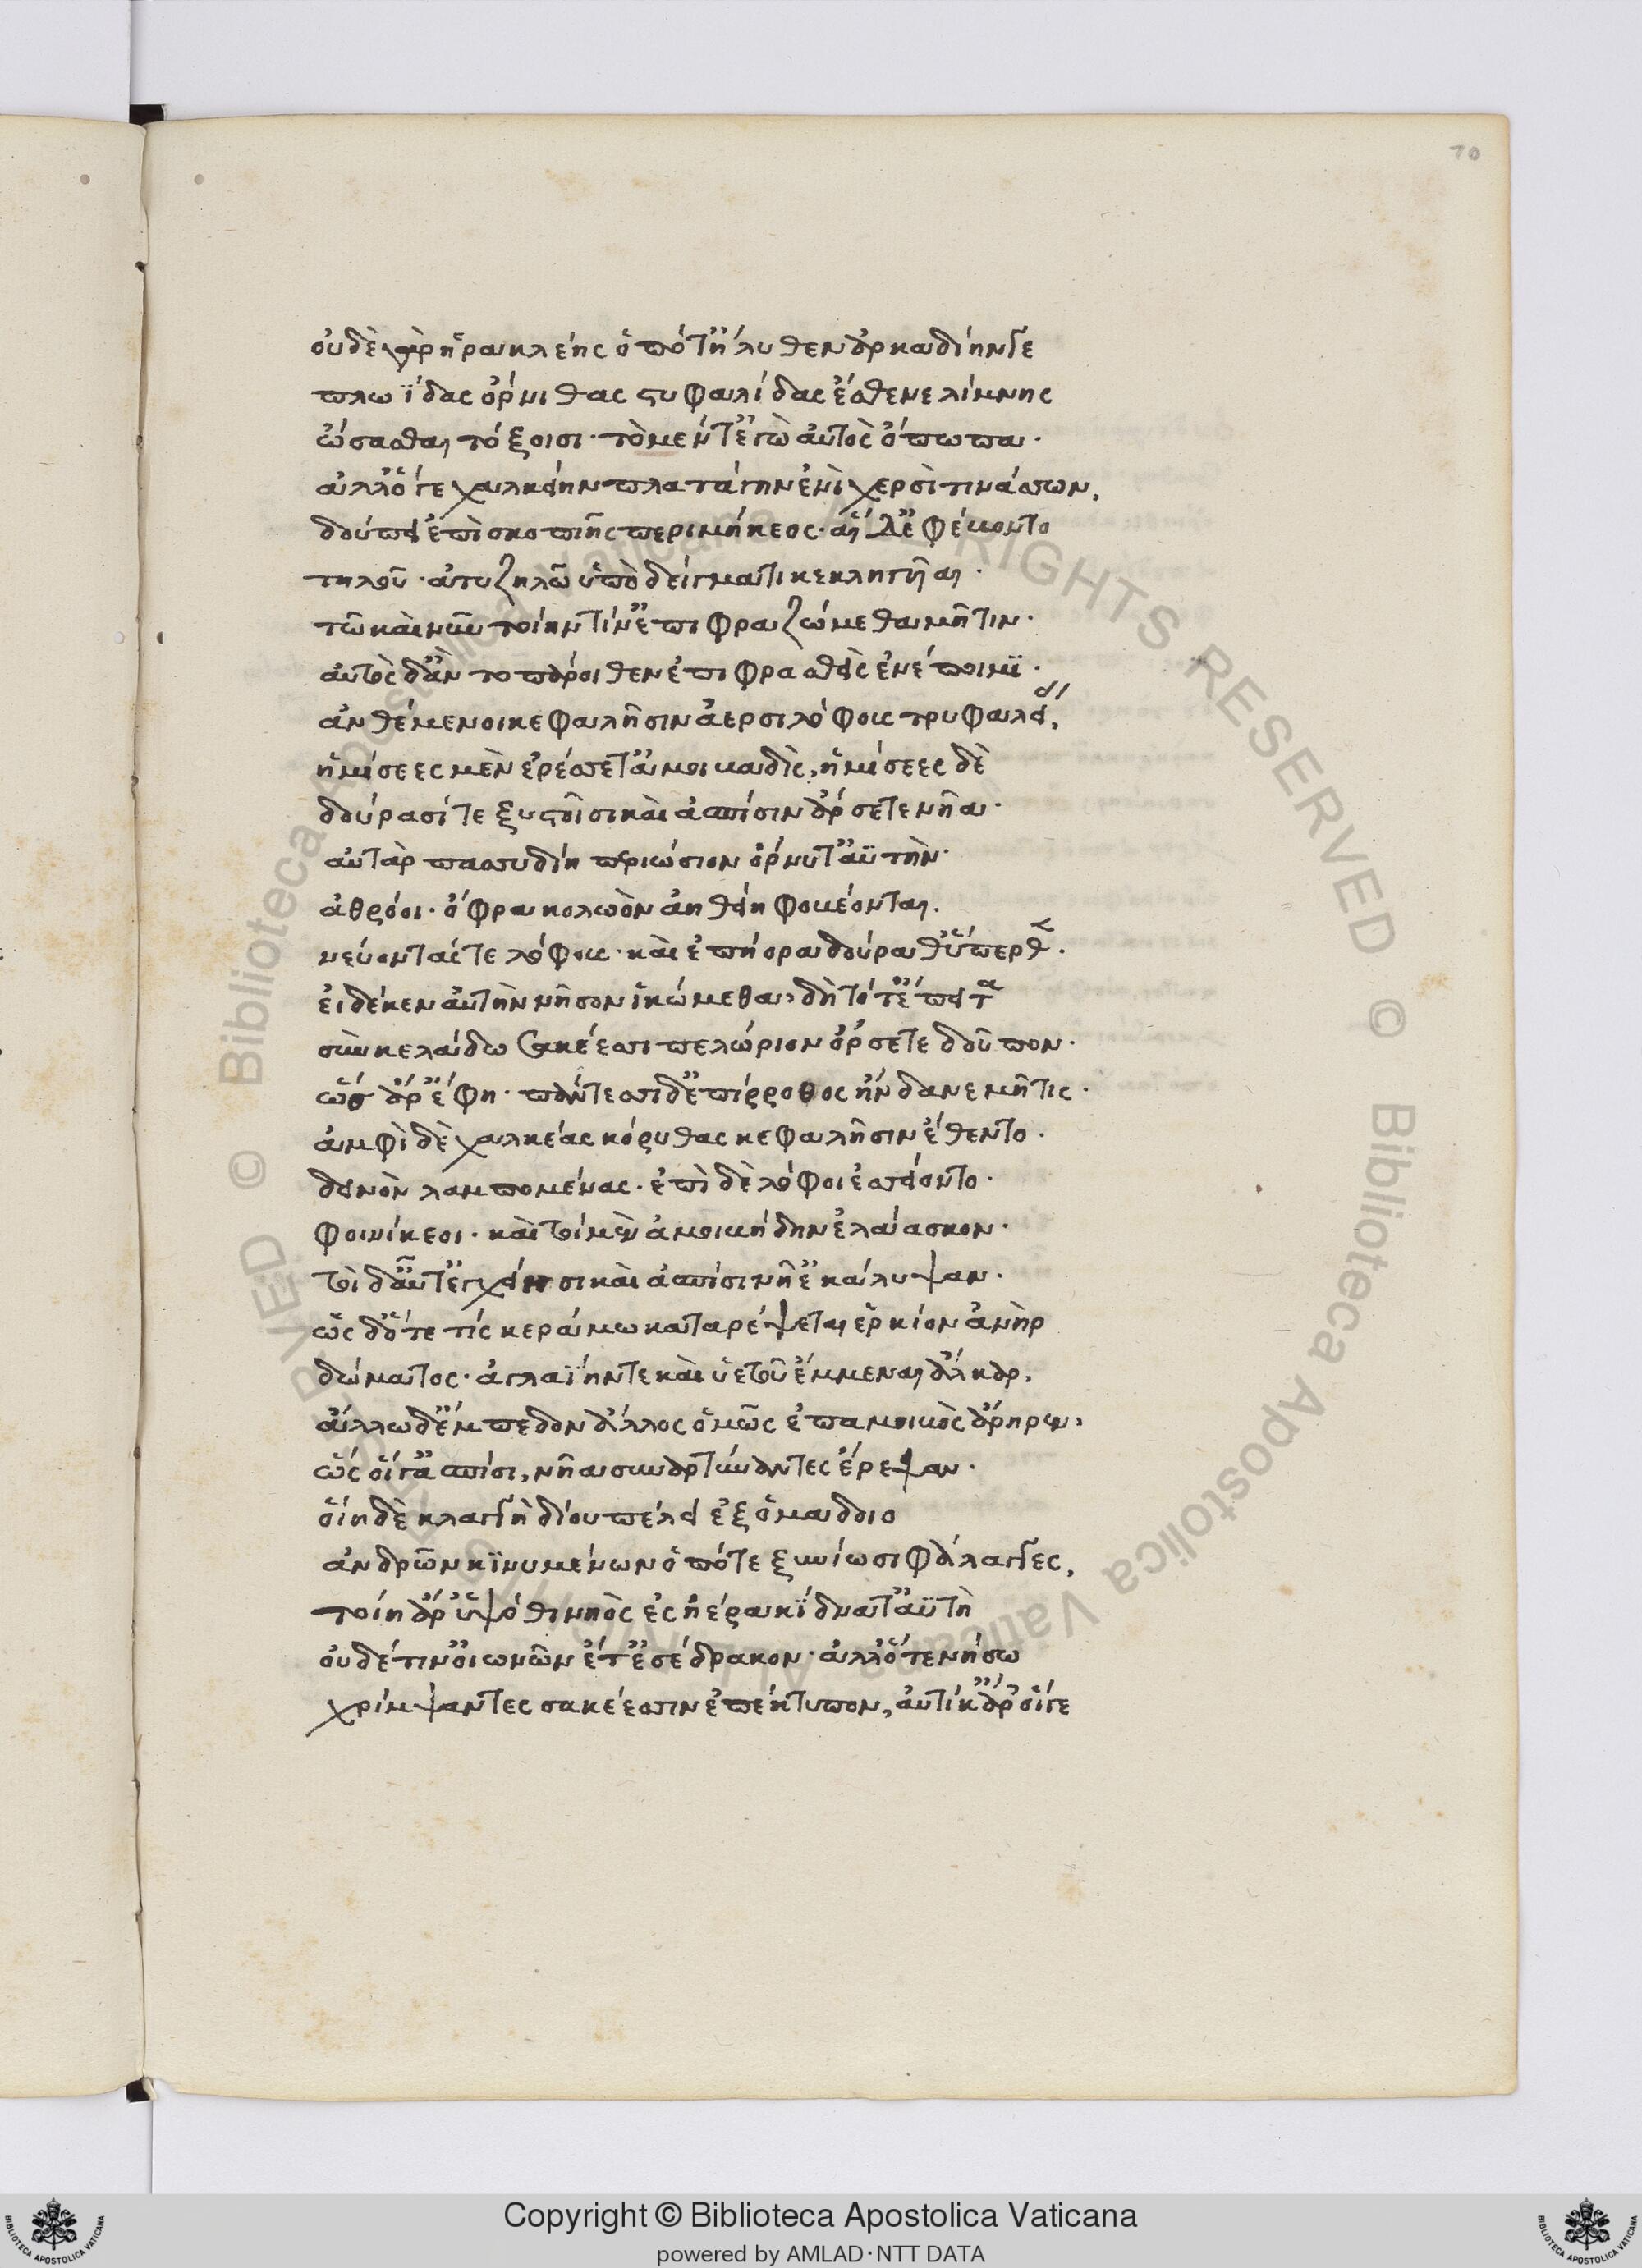 70
οὐδὲ γὰρ ἡρακλέης ὁπότ' ἤλυθεν ἀρκαδίηνδε
πλωϊδας ὄρνιθας στυφαλίδας ἔσθενε λίμνης
ὤσασθαι τόξοισι· τὸ μέν τ' ἐγὼ αὐτὸς ὄπωπα·
ἀλλ' ὅγε χαλκείην πλατάγην ἐνὶ χερσὶ τινάσσων,
δούπει ἐπὶ σκοπιῆς περιμήκεος· αἱ δ' ἐφέβοντο
τηλοῦ· ἀτυζηλῶ ὑπὸ δείγματι κεκληγῆαι·
τῶ καὶ νῦν τοίην τίν' ἐπιφραζώμεθα μῆτιν·
αὐτὸς δ' ἂν τὸ πάροιθεν ἐπιφρασθεὶς ἐνέποιμϊ·
ἀνθέμενοι κεφαλῆσιν ἀερσιλόφους τρυφαλεί,
ἡμίσεες μὲν ἐρέσσετ' ἀμοιβαδὶς, ἡμίσεες δὲ
δούρασί τε ξυστοῖσι καὶ ἀσπίσιν ἄρσετε νῆα·
αὐτὰρ πασσυδίη περιώσιον ὄρνυτ' ἀϋτὴν·
ἀθρόοι· ὄφρα κολωὸν ἀηθείη φοβέονται.
νεύοντάς τε λόφους· καὶ ἐπήορα δούραθ' ὕπερθεν.
εἰ δέ κεν αὐτὴν νῆσον ἱκώμεθα, δὴ τότ' ἔπειτα
σὺν κελάδω σακέεσσι πελώριον ὄρσετε δοῦπον·
ὣς ἄρ' ἔφη· πάντεσσι δ' ἐπίρροθος ἥνδανε μῆτις·
ἀμφὶ δὲ χαλκέας κόρυθας κεφαλῆσιν ἔθεντο·
δεινὸν λαμπομένας· ἐπὶ δὲ λόφοι ἐσσείοντο·
φοινίκεοι· καὶ τοὶ μὲν ἀμοιβήδην ἐλάασκον·
τοὶ δ' αὖτ' ἐγχείησι καὶ ἀσπίσι νῆ' ἐκάλυψαν·
ὡς δ' ὅτε τίς κεράμω καταρέψεται ἑρκίον ἀνὴρ
δώματος· ἀγλαΐην τε καὶ ὑετοῦ ἔμμεναι ἄλκαρ,
ἄλλω δ' ἔμπεδον ἄλλος ὁμῶς ἐπαμοιβὸς ἄρηρεν,
ὣς οἵ γ' ἀσπίσι, νῆα συναρτύναντες ἔρεψαν·
οἵη δὲ κλαγγὴ δίου πέλει ἐξ ὁμάδοιο
ἀνδρῶν κϊνυμένων ὁπότε ξυνίωσι φάλαγγες,
τοίη ἄρ' ὑψόθι νηὸς ἐς ἠέρα κϊδνατ' ἀϋτὴ
οὐδέ τιν' οἰωνῶν ἔτ' ἐσέδρακον· ἀλλ' ὅτε νήσω
χρίμψαντες σακέεσσιν ἐπέκτυπον, αὐτίκ' ἄρ' οἵ γε
Copyright © Biblioteca Apostolica Vaticana
powered by AMLAD·NTT DATA